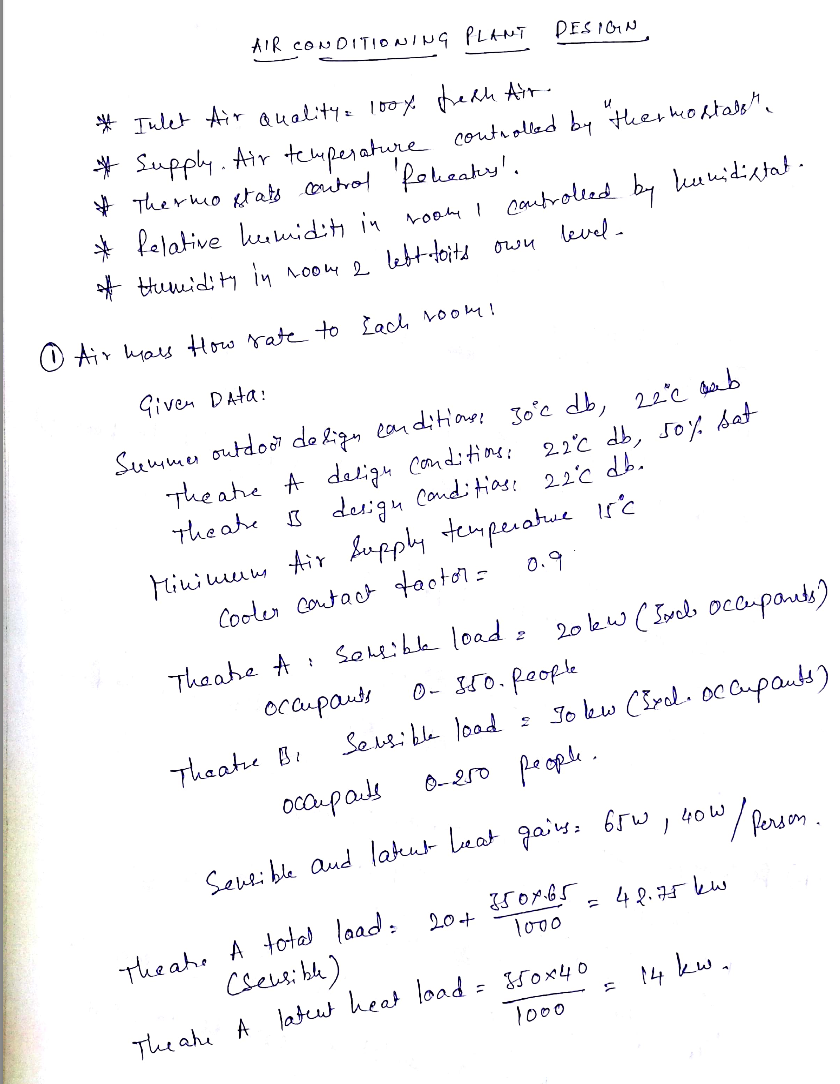 AIR CONDITIONING PLANT DESIGN
* Inlet Air Quality = 100% fresh Air.
* Supply. Air temperature controlled by "thermostats".
* Thermostats control 'Reheaters'.
* Relative humidity in room 1 controlled by humidistat.
* Humidity in room 2 left to its own level.
① Air mass flow rate to Each room:
Given DAta:
Summer outdoor design conditions: 30°c db, 22°c wb
Theatre A design conditions: 22°c db, 50% sat
Theatre B design conditions: 22°c db.
Minimum Air Supply temperature 15°c
Cooler contact factor = 0.9
Theatre A : Sensible load = 20 kw (Excl. occupants)
occupants 0-350. people
Theatre B: Sensible load = 30 kw (Excl. occupants)
occupants 0-250 people.
Sensible and latent heat gains: 65w , 40w / Person.
Theatre A total load = 20 + 350x65 / 1000 = 42.75 kw
(Sensible)
Theatre A latent heat load = 350x40 / 1000 = 14 kw.